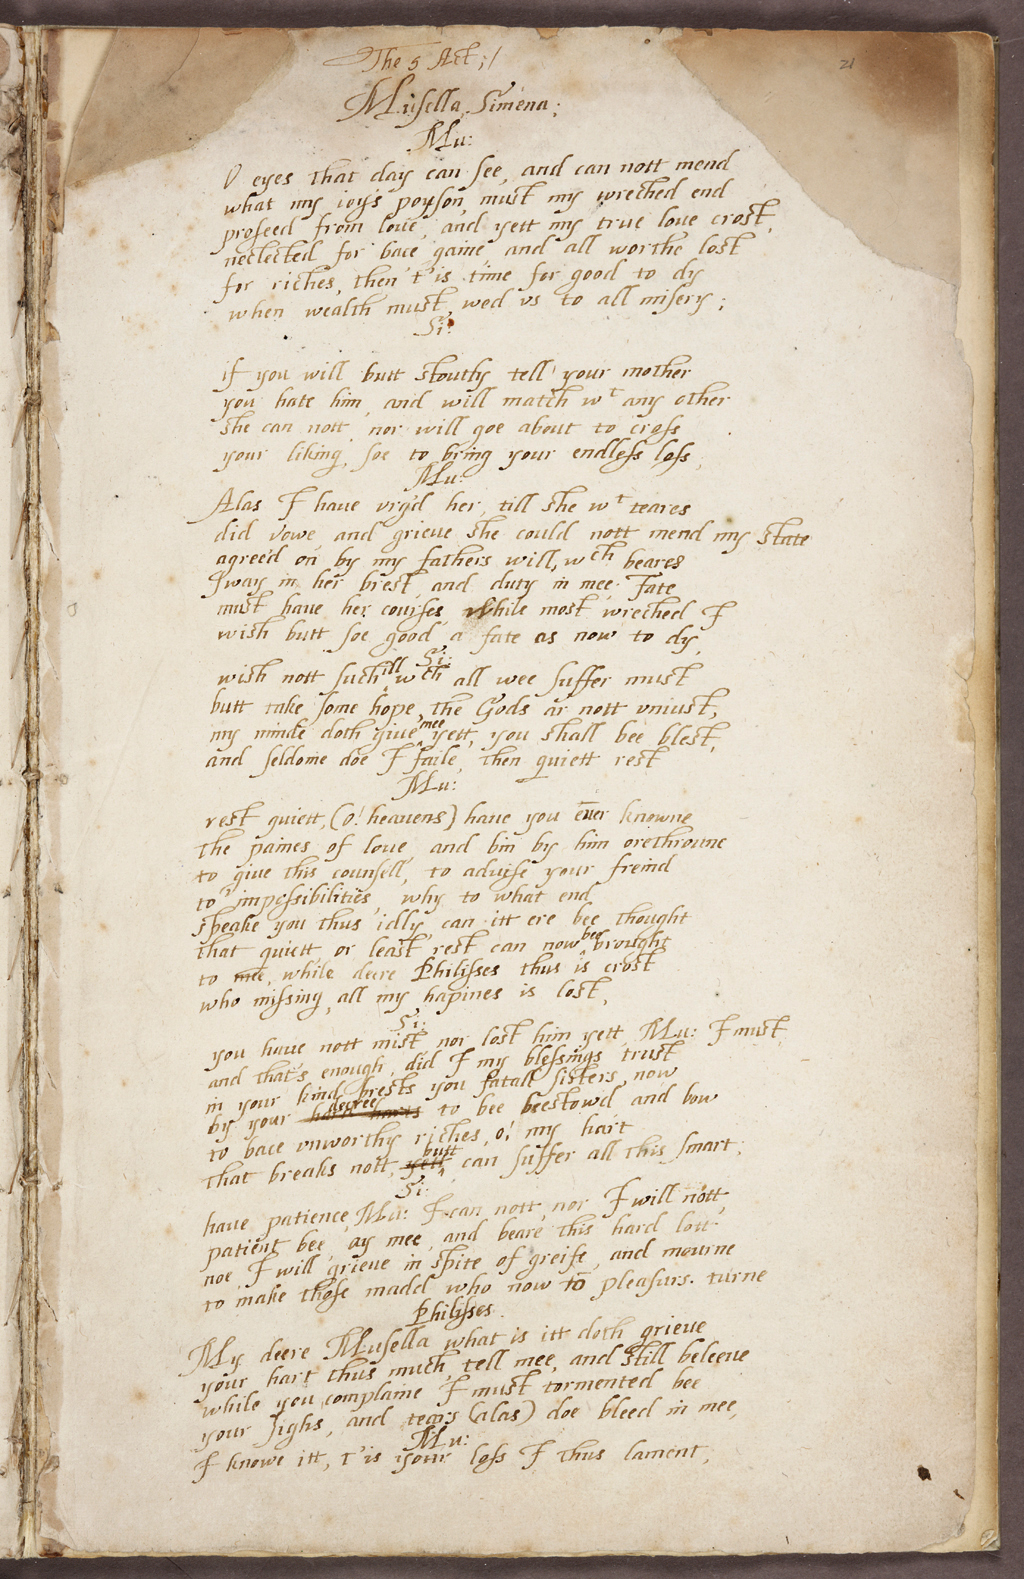 21
The 5 Act;/
Musella, Simena;
Mu:
O eyes that day can see, and can nott mend
what my ioy's poyson, must my wreched end
proseed from loue, and yett my true loue crost,
neclected for bace gaine, and all worthe lost
for riches, then t'is time for good to dy
when wealth must wed vs to all misery;
Si:
if you will butt stoutly tell your mother
you hate him, and will match wt any other
she can nott, nor will goe about to cross
your liking, soe to bring your endless loss,
Mu:
Alas I haue vrg'd her, till she wt teares
did vowe, and grieue she could nott mend my state
agreed on by my fathers will, wch beares
sway in her brest, and duty in mee. Fate
must haue her courses, while most wreched I
wish butt soe good a fate as now to dy,
Si:
wish nott such ill wch all wee suffer must
butt take some hope, the Gods ar nott vniust,
my minde doth giue mee yett, you shall bee blest,
and seldome doe I faile, then quiett rest
Mu:
rest quiett, (o! heauens) haue you euer knowne
the paines of loue, and bin by him orethrowne
to giue this counsell, to aduise your freind
to impossibilities, why to what end
speake you thus idly, can itt ere bee thought
that quiett or least rest can now bee brought
to mee, while deere Philisses thus is crost
who missing, all my hapines is lost,
Si:
you haue nott mist, nor lost him yett, Mu: I must
and that's enough, did I my blessings trust
in your kind brests you fatall sisters, now
by your hard harts decree to bee beestowd and bow
to bace vnworthy riches, o! my hart
that breaks nott, yett butt can suffer all this smart;
Si:
haue patience, Mu: I can nott, nor I will nott,
patient bee, ay mee, and beare this hard lott
noe I will grieue in spite of greife, and mourne
to make those madd who now to pleasurs turne
Philisses
My deere Musella what is itt doth grieue
your hart thus much, tell mee, and still beleeue
while you complaine I must tormented bee
your sighs, and tears (alas) doe bleed in mee,
Mu:
I knowe itt, t'is your loss I thus lament,